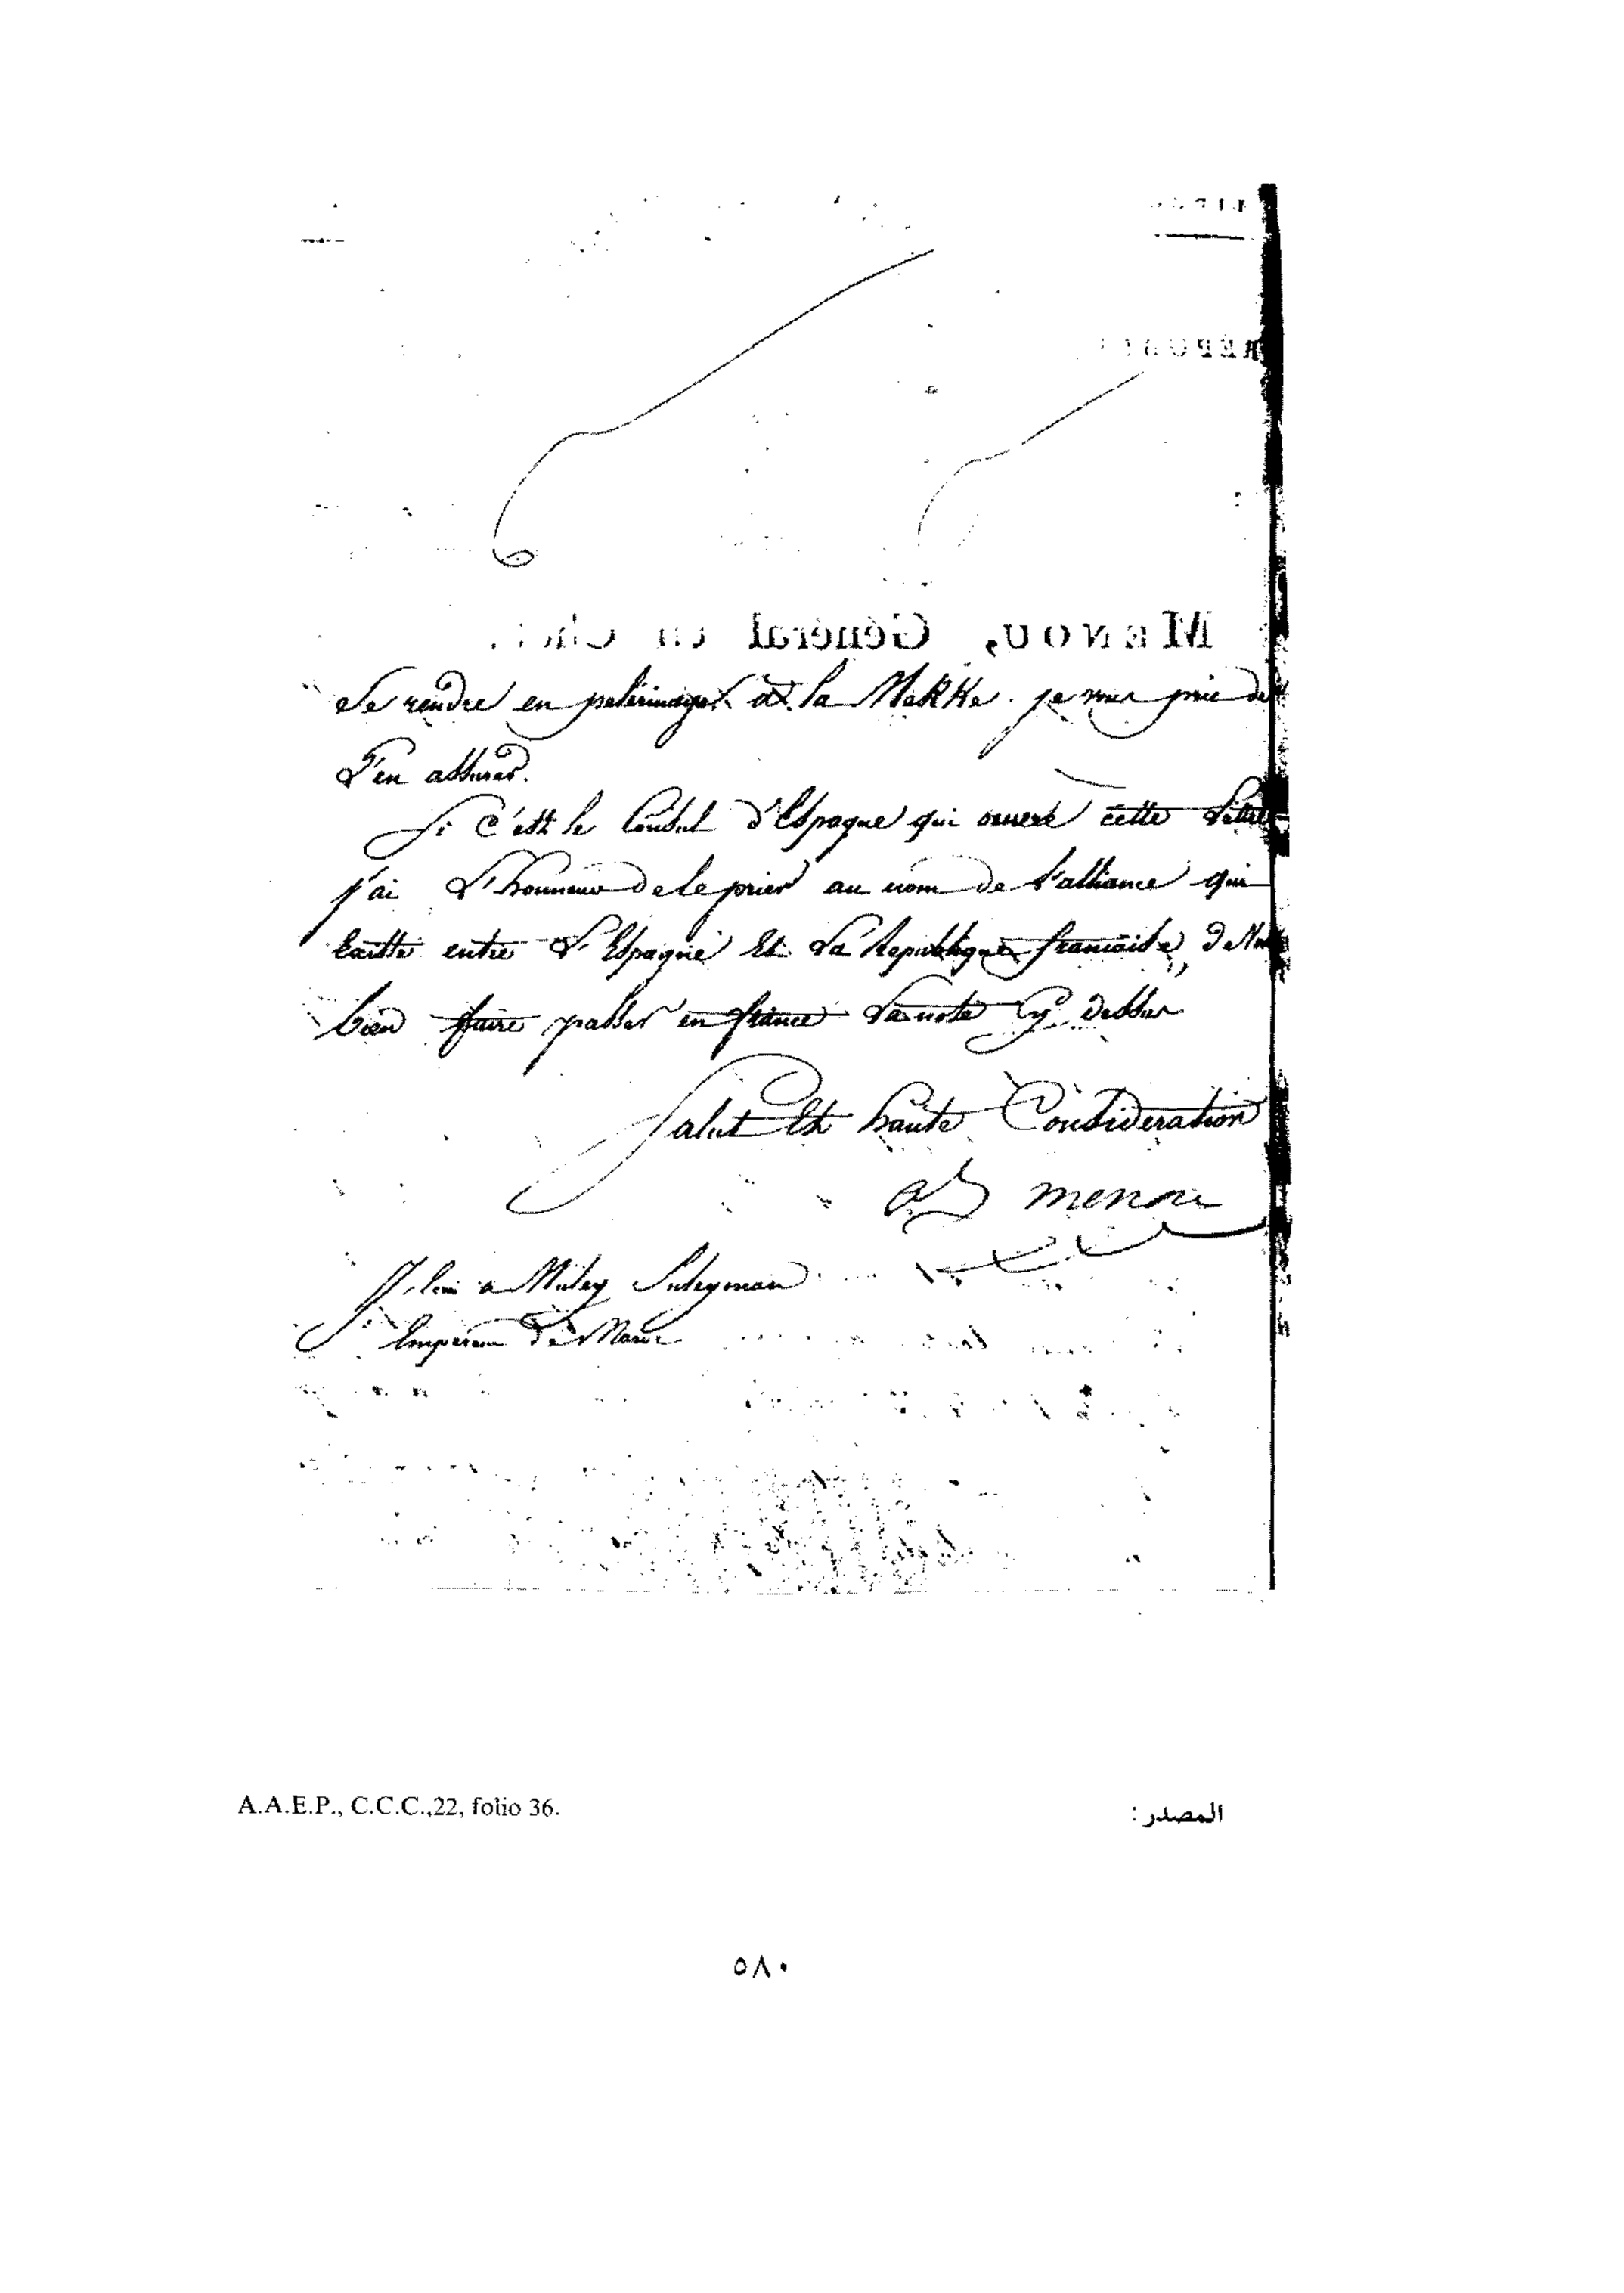 MENOU, Général en Chef
se rendre en pelerinage à la Mekke. je vous prie de
l'en assurer.
Si c'est le Consul d'Espagne qui ouvre cette lettre
j'ai l'honneur de le prier au nom de l'alliance qui
Existe entre l'Espagne Et la Republique francaise, de
bien faire passer en france la note cy dessus
Salut Et haute Consideration
menou
a Muley Suleyman
Empereur de Maroc
A.A.E.P., C.C.C.,22, folio 36.
المصدر :
٥٨٠